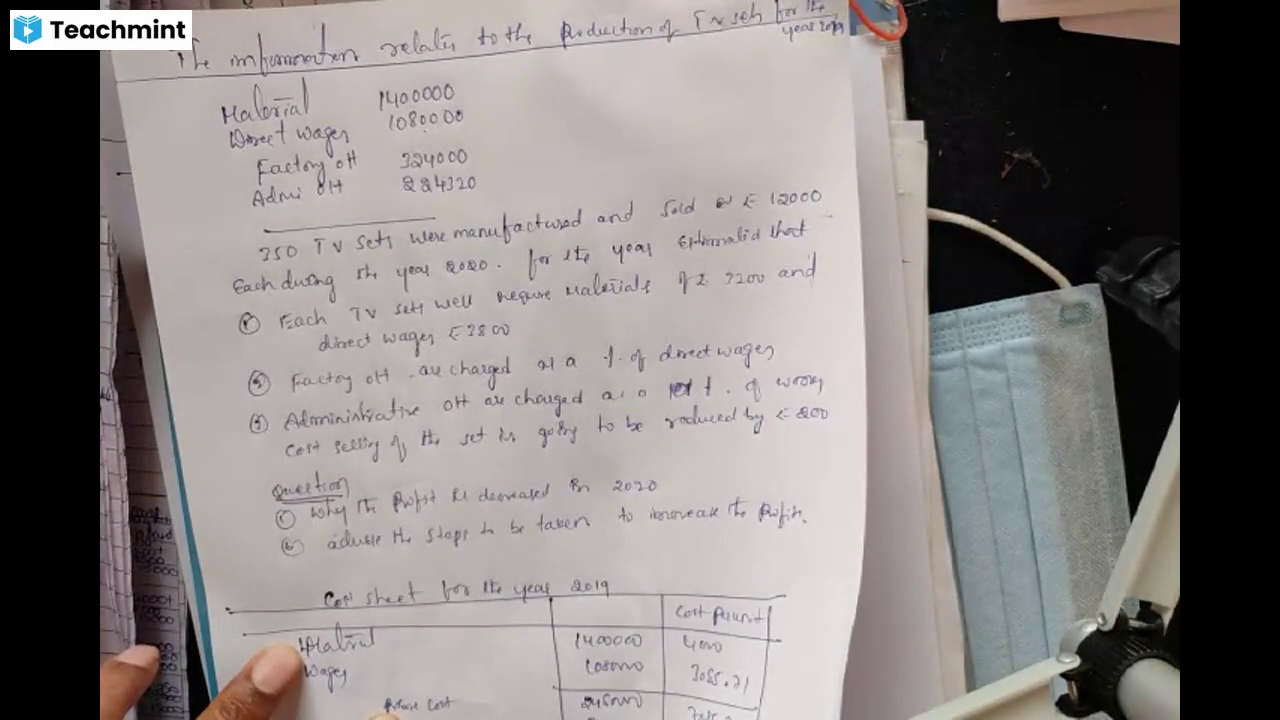 Teachmint
The information relates to the Production of Tv sets for the
year 2019
Material 1400000
Direct wages 1080000
Factory oH 324000
Admi oH 224320
350 TV sets were manufactured and sold @ ₹ 12000
Each during the year 2020. for the year Estimated that
Each TV sets well require materials of ₹ 3200 and
direct wages ₹ 3800
Factory oH are charged as a %. of direct wages
Admininistrative oH are charged as a %. of works
cost selling of the set is going to be reduced by ₹ 200
Question
① why the Profit is decreased in 2020
advise the steps to be taken to increase the Profits.
Cost sheet for the year 2019
Cost Per unit
Material 1400000 4000
Wages 1080000 3085.71
Prime Cost